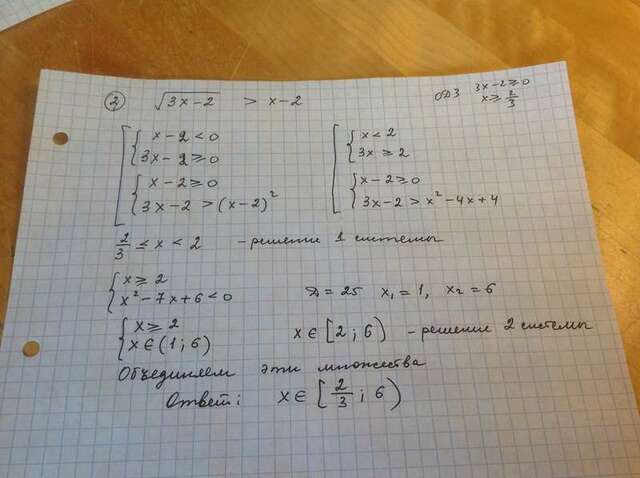 2) √(3x-2) > x-2
ОДЗ 3x-2≥0
x≥2/3
[ { x-2<0
3x-2≥0
{ x-2≥0
3x-2>(x-2)²
[ { x<2
3x≥2
{ x-2≥0
3x-2>x²-4x+4
2/3 ≤ x < 2 - решение 1 системы
{ x≥2
x²-7x+6<0 D=25 x₁=1, x₂=6
{ x≥2
x∈(1;6) x∈[2;6) - решение 2 системы
Объединяем эти множества
Ответ: x∈[2/3;6)